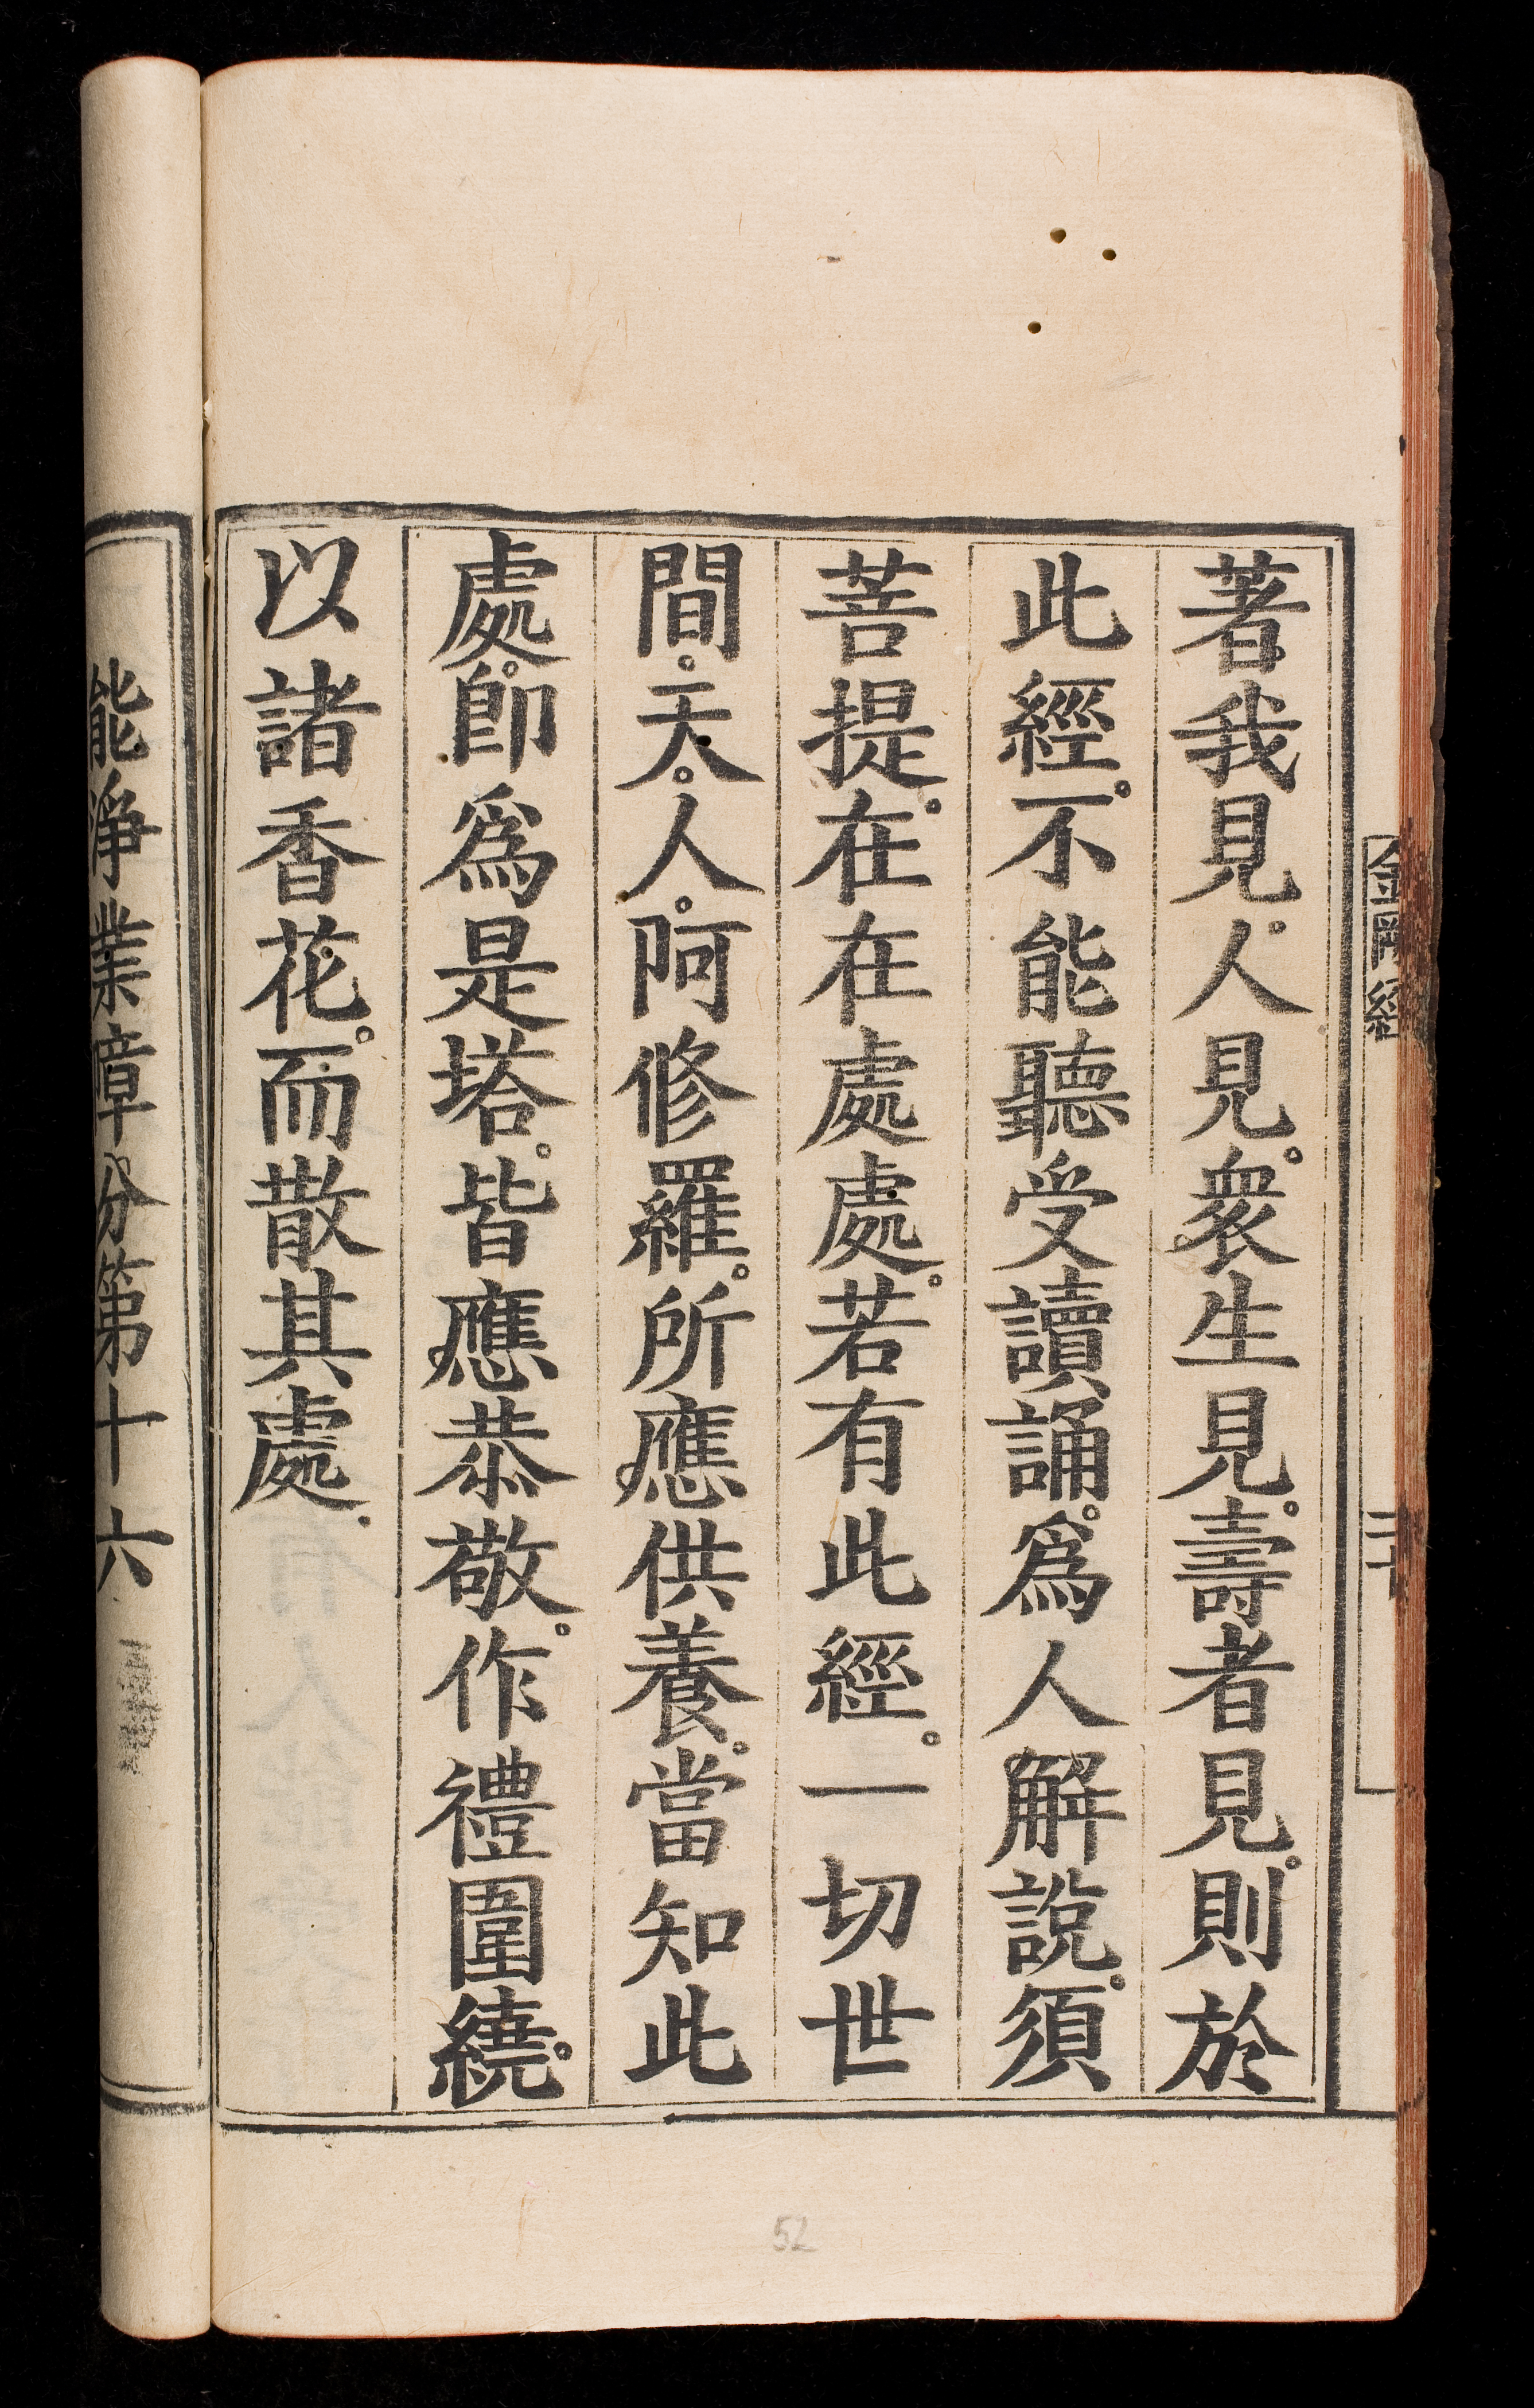 著我見。人見。衆生見。壽者見。則於
此經。不能聽受讀誦。爲人解說。須
菩提。在在處處。若有此經。一切世
間。天。人。阿修羅。所應供養。當知此
處。卽爲是塔。皆應恭敬。作禮圍繞。
以諸香花。而散其處。
能淨業障分第十六
金剛經
52